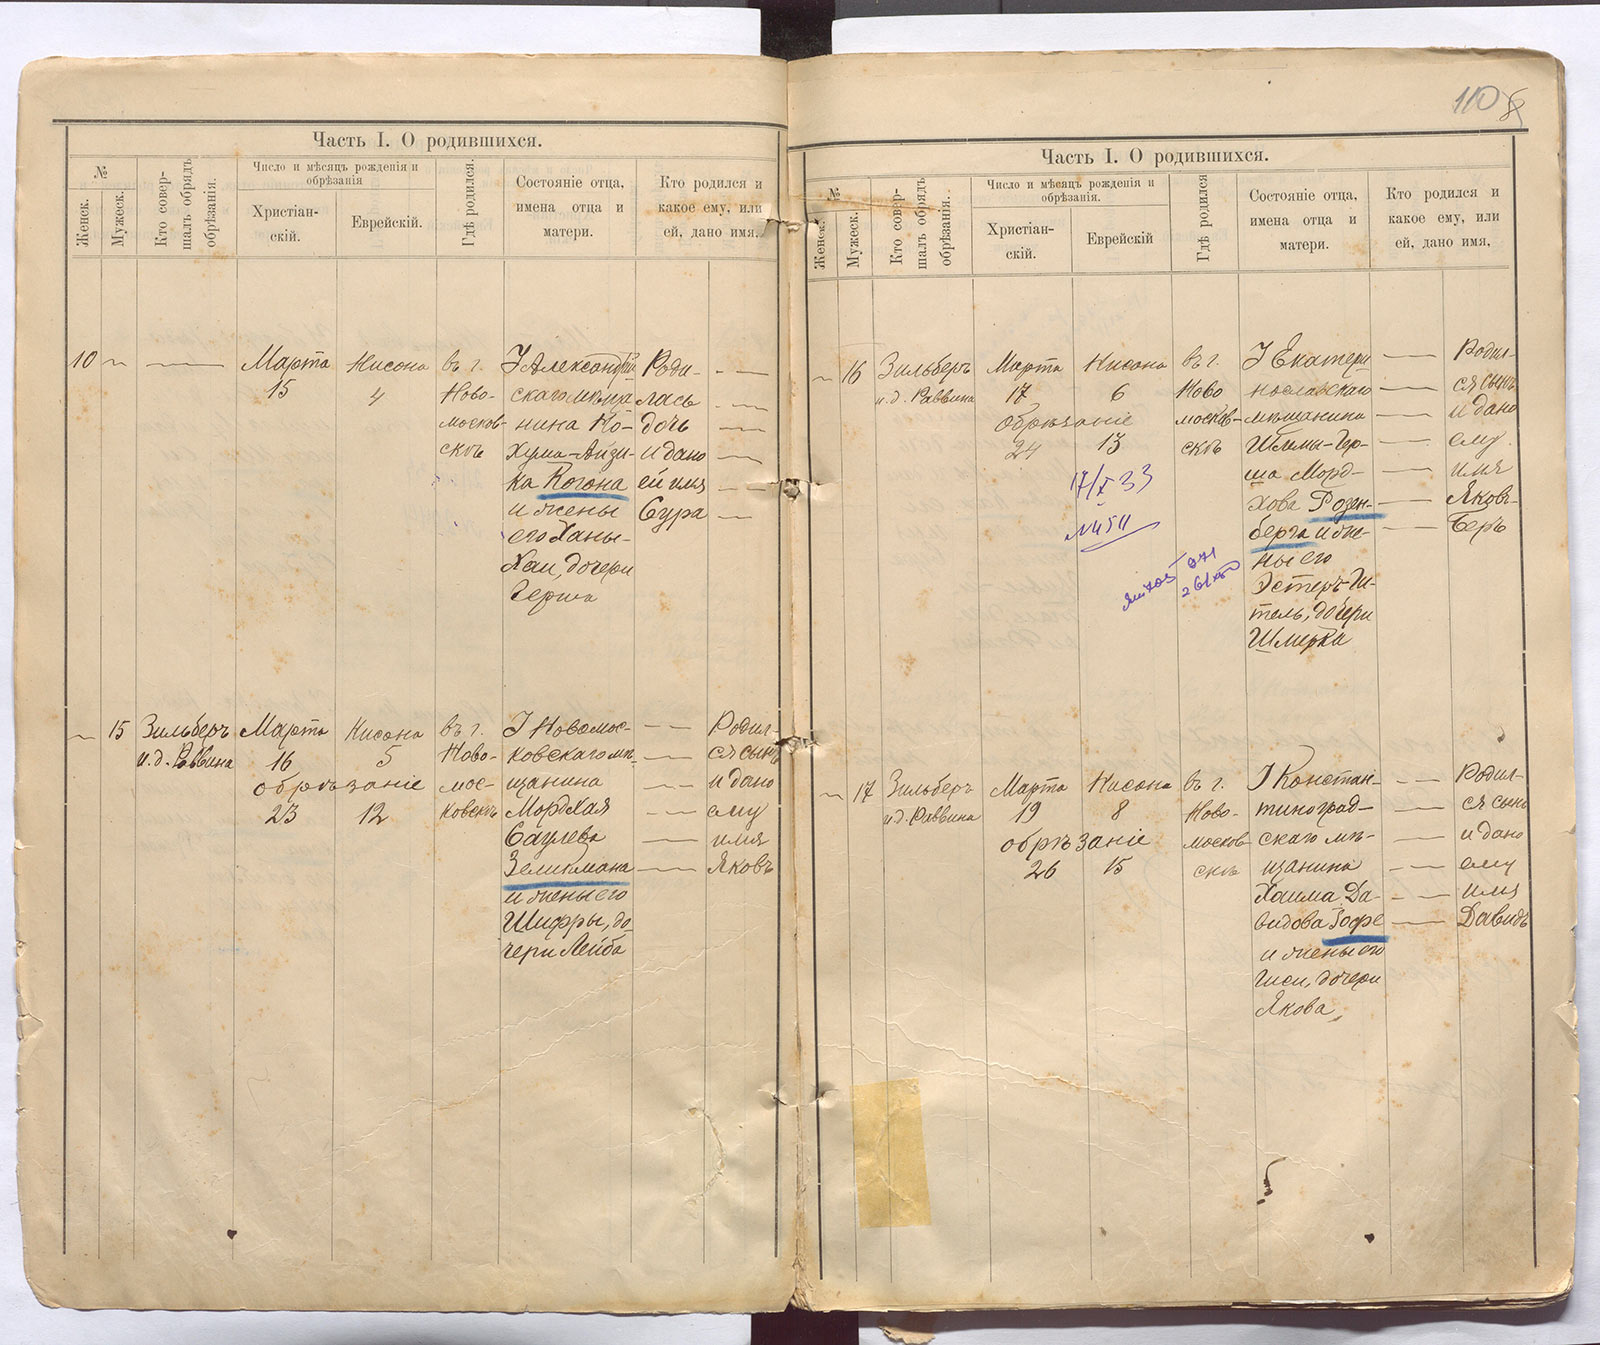 Часть I. О родившихся.
№
Женск.
Мужеск.
Кто совер-
шалъ обрядъ
обрѣзанія.
Число и мѣсяцъ рожденія и
обрѣзанія
Христіан-
скій.
Еврейскій.
Гдѣ родился.
Состояніе отца,
имена отца и
матери.
Кто родился и
какое ему, или
ей, дано имя.
10
Марта
15
Нисона
4
въ г.
Ново-
москов-
скѣ
Александрій
скаго мѣща
нина Ко-
Хума-Айзи-
ка Когона
и жены
его Ханы-
Хаи, дочери
Герша
Роди-
лась
дочь
и дано
ей имя
Сура
15
Зильберъ
и.д. Раввина
Марта
16
обрѣзаніе
23
Нисона
5
12
въ г.
Ново-
мос-
ковскѣ
Новомос-
ковскаго мѣ-
щанина
Мордхая
Саулева
Зеликмана
и жены его
Шифры, до-
чери Лейба
Родил-
ся сынъ
и дано
ему
имя
Яковъ
110
Часть I. О родившихся.
№
Женск.
Мужеск.
Кто совер-
шалъ обрядъ
обрѣзанія.
Число и мѣсяцъ рожденія и
обрѣзанія.
Христіан-
скій.
Еврейскій
Гдѣ родился
Состояніе отца,
имена отца и
матери.
Кто родился и
какое ему, или
ей, дано имя,
16
Зильберъ
и.д. Раввина
Марта
17
обрѣзаніе
24
Нисона
6
13
17/X 33
въ г.
Ново
москов-
скѣ
Екатери
нославскаго
мѣщанина
Шлемы-Гер-
ша Морд-
хова Розен-
берга и же-
ны его
Эстеръ-Ги-
тель, дочери
Шмерка
Родил-
ся сынъ
и дано
ему
имя
Яковъ-
Беръ
17
Зильберъ
и.д. Раввина
Марта
19
обрѣзаніе
26
Нисона
8
15
въ г.
Ново-
москов
скѣ
Констан-
тиноград-
скаго мѣ-
щанина
Хаима Да-
видова Гофе
и жены его
Гиси, дочери
Якова,
Родил-
ся сынъ
и дано
ему
имя
Давидъ